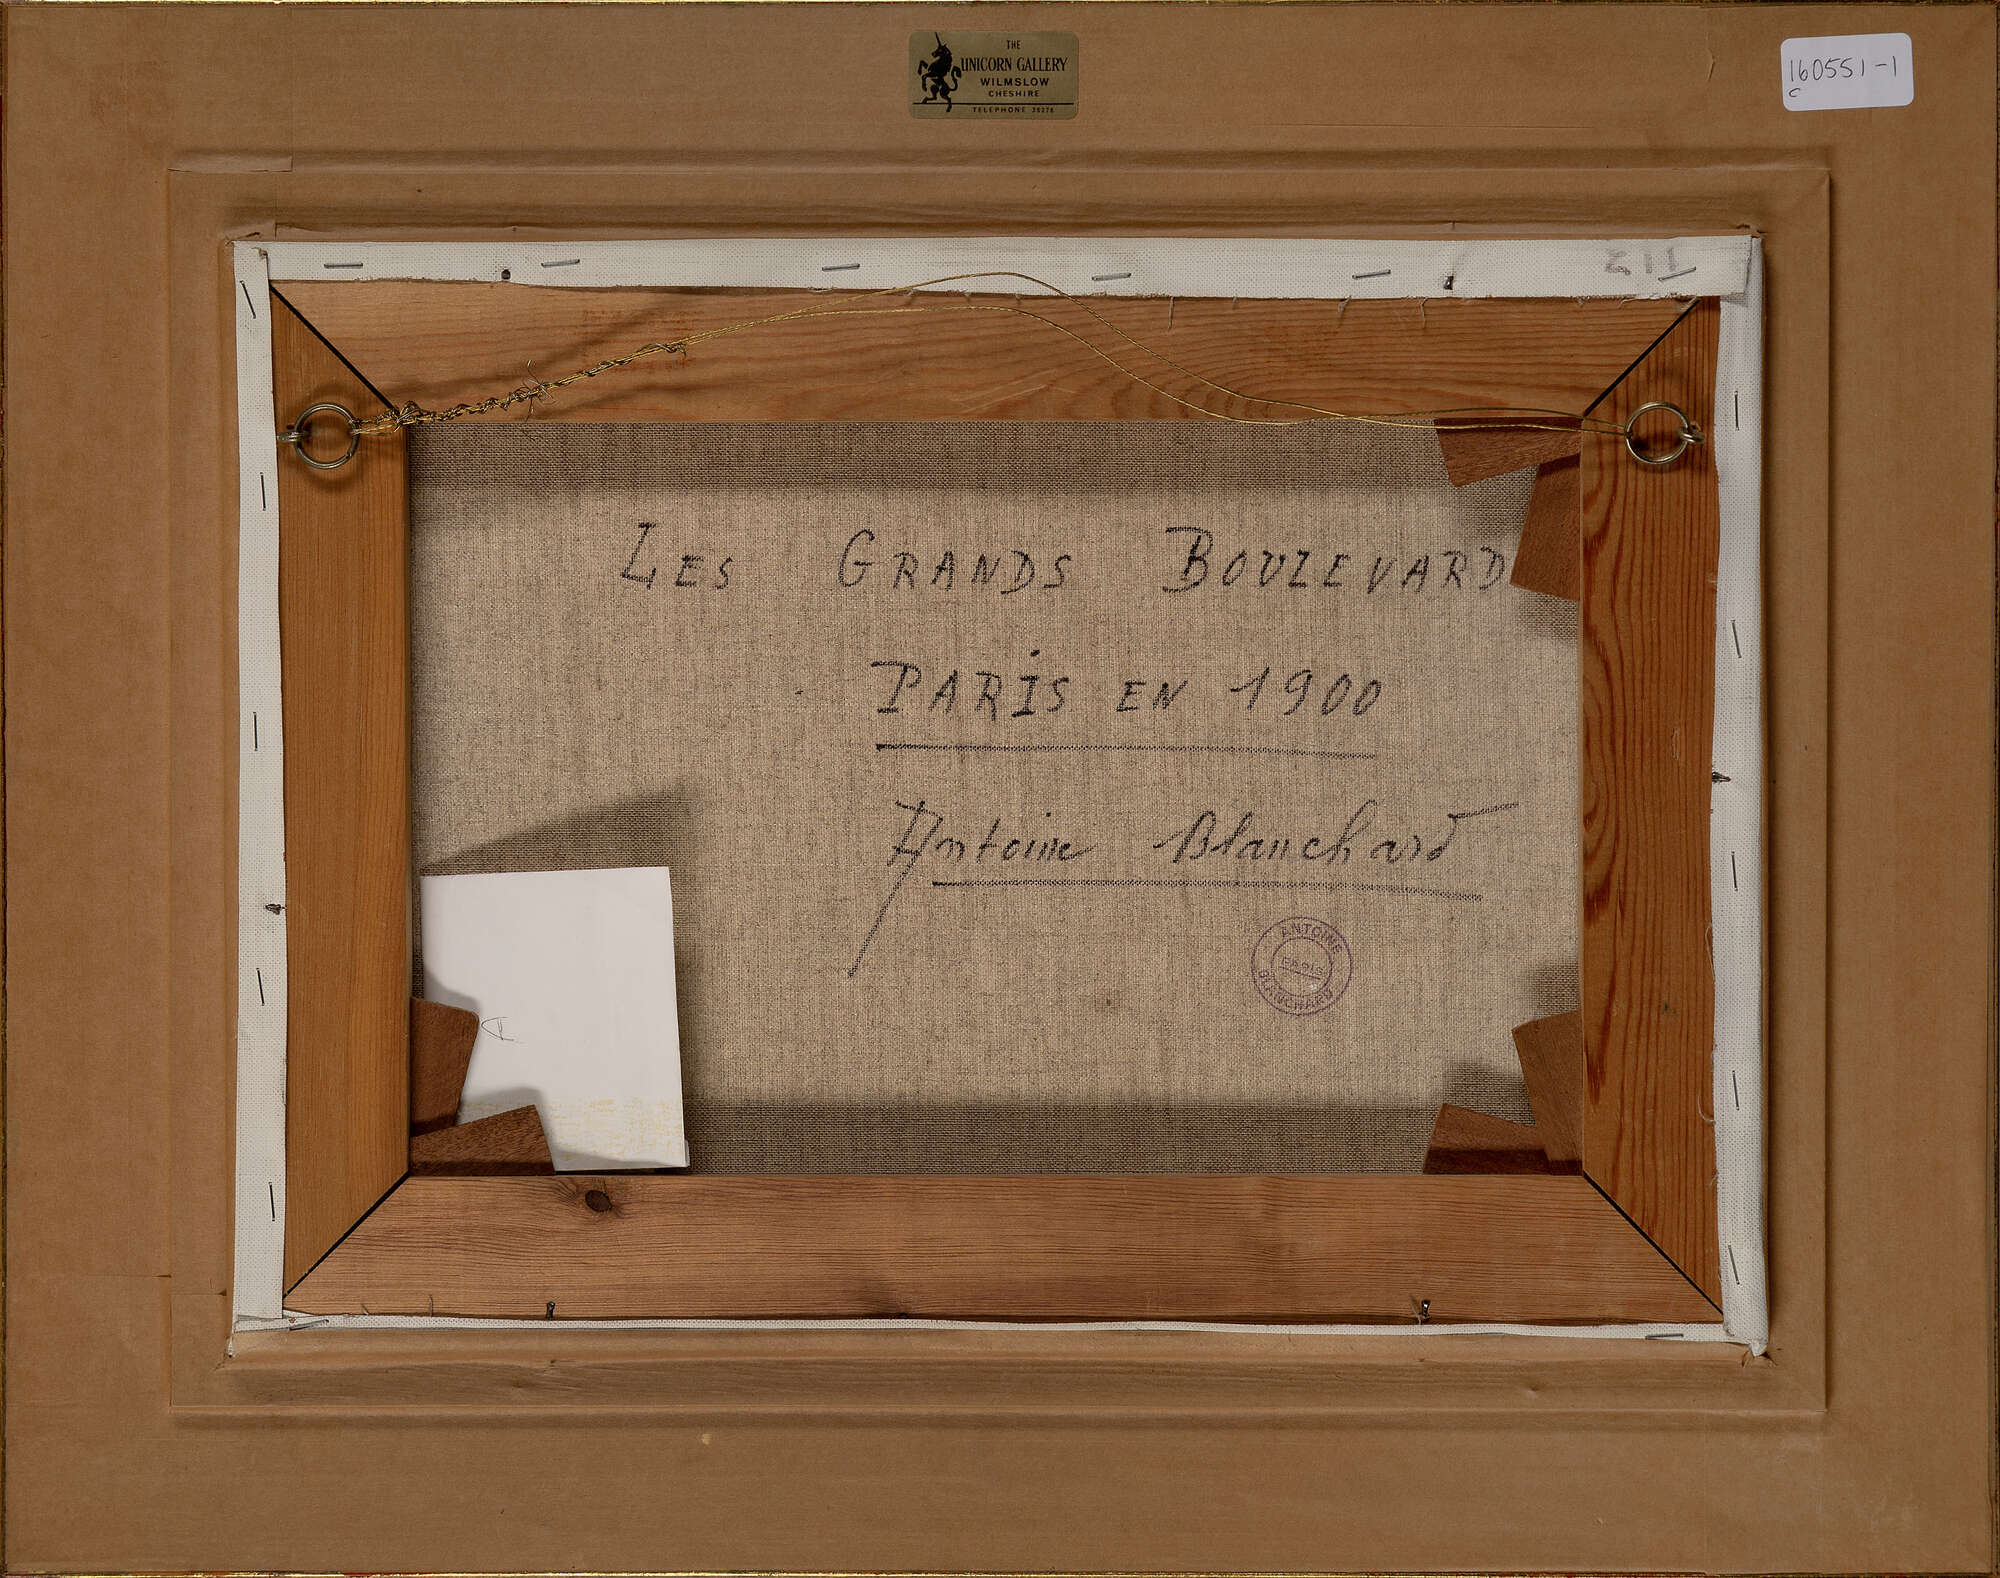 THE
UNICORN GALLERY
WILMSLOW
CHESHIRE
TELEPHONE
160551-1
C
211
LES GRANDS BOULEVARD
PARIS EN 1900
Antoine Blanchard
ANTOINE
PARIS
BLANCHARD